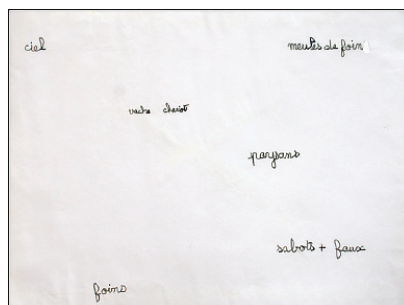 ciel
meules de foin
vache chariot
paysans
sabots + faux
foins